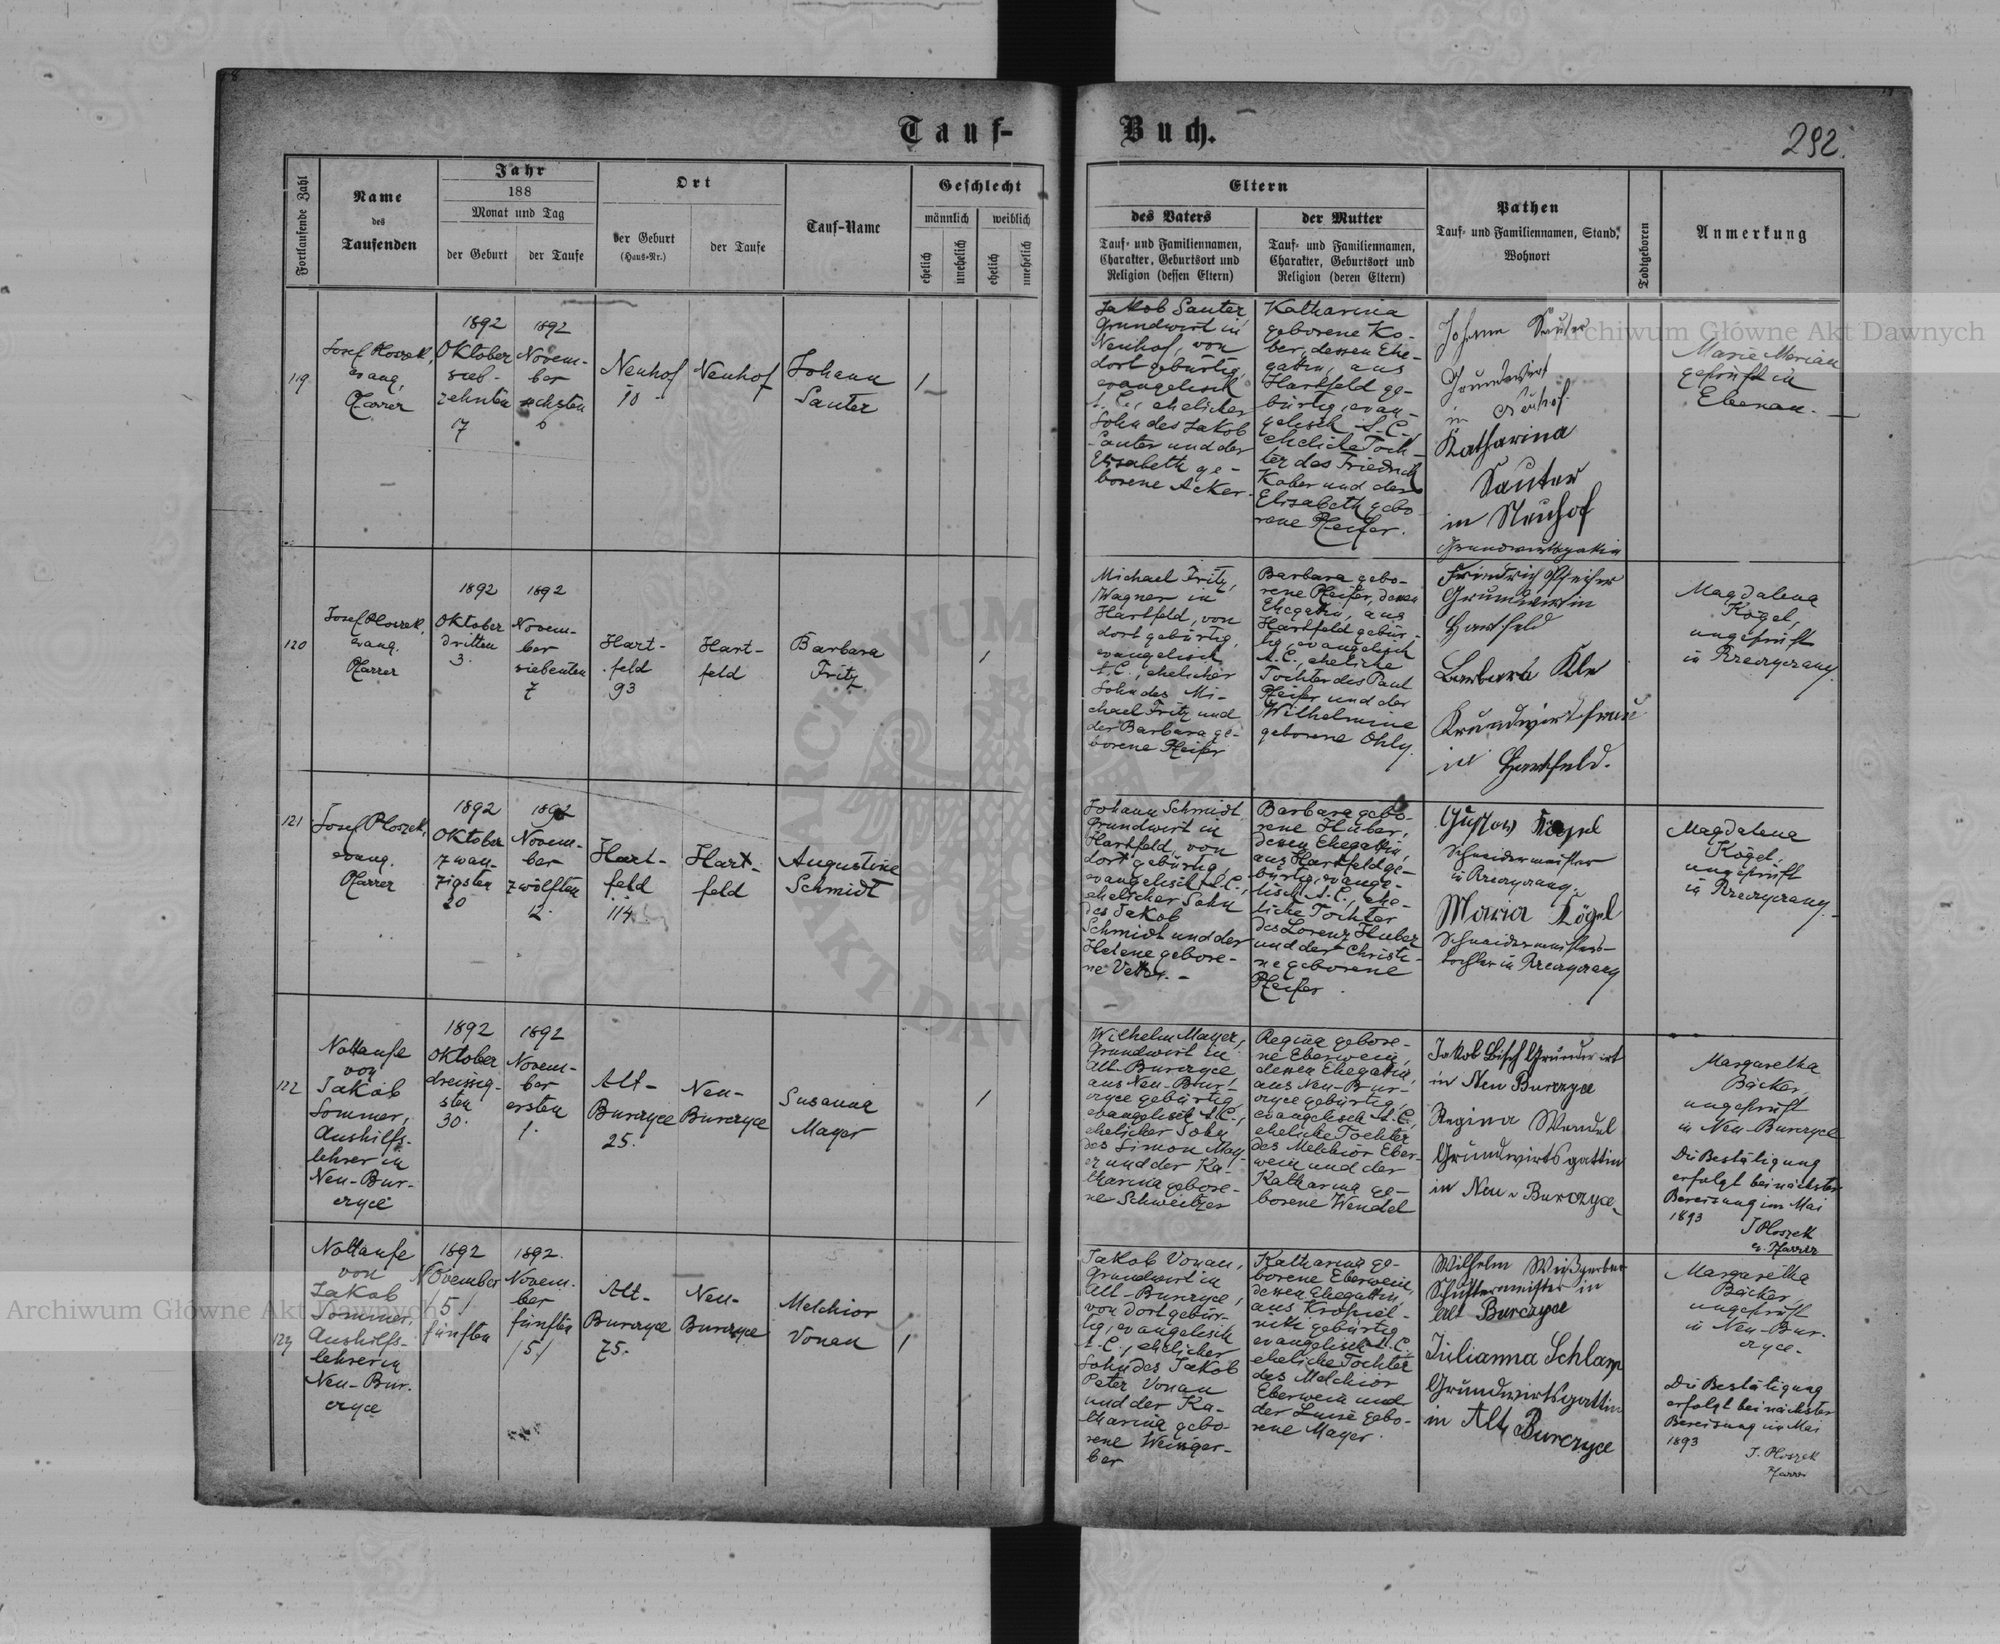 Tauf-
Buch.
292.
Fortlaufende Zahl
Name
des
Taufenden
Jahr
188
Monat und Tag
der Geburt
der Taufe
Ort
der Geburt
(Haus-Nr.)
der Taufe
Tauf-Name
Geschlecht
männlich
weiblich
ehelich
unehelich
ehelich
unehelich
Eltern
des Vaters
Tauf- und Familiennamen,
Charakter, Geburtsort und
Religion (dessen Eltern)
der Mutter
Tauf- und Familiennamen,
Charakter, Geburtsort und
Religion (deren Eltern)
Pathen
Tauf- und Familiennamen, Stand,
Wohnort
Todtgeboren
Anmerkung
119
Josef Ploszek,
evang.
Pfarrer
1892
Oktober
sieb-
zehnten
17
1892
Novem-
ber
sechsten
6
Neuhof
10
Neuhof
Johann
Sauter
1
Jakob Sauter
Grundwirt in
Neuhof, von
dort gebürtig,
evangelisch
A. C., ehelicher
Sohn des Jakob
Sauter und der
Elisabeth ge-
borene Acker.
Katharina
geborene Ko-
ber, dessen Ehe-
gattin, aus
Hartfeld ge-
bürtig, evan-
gelisch A. C.,
eheliche Toch-
ter des Friedrich
Kober und der
Elisabeth gebo-
rene Pfeifer.
Johann Sauter
Grundwirt
in Neuhof.
Katharina
Sauter
in Neuhof
Grundwirtsgattin
Marie Marian
geprüft in
Ebenau.
120
Josef Ploszek,
evang.
Pfarrer
1892
Oktober
dritten
3.
1892
Novem-
ber
siebenten
7
Hart-
feld
93
Hart-
feld
Barbara
Fritz
1
Michael Fritz,
Wagner in
Hartfeld, von
dort gebürtig,
evangelisch
A. C., ehelicher
Sohn des Mi-
chael Fritz und
der Barbara ge-
borene Pfeifer
Barbara gebo-
rene Pfeifer, dessen
Ehegattin, aus
Hartfeld gebür-
tig, evangelisch
A. C., eheliche
Tochter des Paul
Pfeifer und der
Wilhelmine
geborene Ohly.
Friedrich Pfeifer
Grundwirt in
Hartfeld
Barbara
Grundwirtsfrau
in Hartfeld.
Magdalena
Kögel,
ungeprüft
in Rzeczyczany.
121
Josef Ploszek,
evang.
Pfarrer
1892
Oktober
zwan-
zigsten
20
1892
Novem-
ber
zwölften
12.
Hart-
feld
114
Hart-
feld
Augustine
Schmidt
Johann Schmidt
Grundwirt in
Hartfeld, von
dort gebürtig,
evangelisch A. C.,
ehelicher Sohn
des Jakob
Schmidt und der
Helene gebore-
ne Vetter.
Barbara gebo-
rene Huber,
dessen Ehegattin,
aus Hartfeld ge-
bürtig, evange-
lisch A. C., ehe-
liche Tochter
des Lorenz Huber
und der Christi-
ne geborene
Pfeifer
Gustav Kögel
Schneidermeister
in Rzeczyczany.
Maria Kögel
Schneidermeisters-
tochter in Rzeczyczany
Magdalena
Kögel,
ungeprüft
in Rzeczyczany.
122
Nottaufe
von
Jakob
Sommer,
Aushilfs-
lehrer in
Neu-Bur-
czyce
1892
Oktober
dreissig-
sten
30.
1892
Novem-
ber
ersten
1.
Alt-
Burczyce
25.
Neu-
Burczyce
Susanna
Mayer
1
Wilhelm Mayer,
Grundwirt in
Alt-Burczyce
aus Neu-Bur-
czyce gebürtig,
evangelisch A. C.,
ehelicher Sohn
des Simon May-
er und der Ka-
tharina gebore-
ne Schweitzer
Regina gebore-
ne Eberwein,
dessen Ehegattin,
aus Neu-Bur-
czyce gebürtig,
evangelisch A. C.,
eheliche Tochter
des Melchior Eber-
wein und der
Katharina ge-
borene Wendel
Jakob Bisch Grundwirt
in Neu Burczyce
Regina Wendel
Grundwirtsgattin
in Neu-Burczyce.
Margaretha
Bäcker,
ungeprüft
in Neu-Burczyce
Die Bestätigung
erfolgt bei nächster
Bereisung im Mai
1893 J Ploszek
e. Pfarrer
123
Nottaufe
von
Jakob
Sommer,
Aushilfs-
lehrer in
Neu-Bur-
czyce
1892
November
/5/
fünften
1892.
Novem-
ber
fünften
/5/
Alt-
Burczyce
75.
Neu-
Burczyce
Melchior
Vonau
1
Jakob Vonau,
Grundwirt in
Alt-Burczyce,
von dort gebür-
tig, evangelisch
A. C., ehelicher
Sohn des Jakob
Peter Vonau
und der Ka-
tharina gebo-
rene Weisger-
ber
Katharina ge-
borene Eberwein,
dessen Ehegattin,
gebürtig,
evangelisch A. C.,
eheliche Tochter
des Melchior
Eberwein und
der Luise gebo-
rene Mayer.
Wilhelm Weißgerber
Schustermeister in
Alt Burczyce
Julianna Schlamp
Grundwirtsgattin
in Alt Burczyce
Margaretha
Bäcker,
ungeprüft
in Neu-Bur-
czyce.
Die Bestätigung
erfolgt bei nächster
Bereisung im Mai
1893
J. Ploszek
Pfarrer
Archiwum Główne Akt Dawnych
Archiwum Główne Akt Dawnych